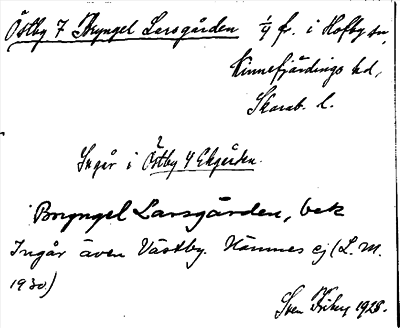 Östby 7 Bryngel Larsgården 1/4 fr. i Hofby sn,
Kinnefjärdings hd,
Skarab. l.
?
Ingår i Östby 4 Ekgården.
Bryngel Larsgården, bek
Ingår även Västby. Nämnes ej (L. M.
1930.)
Sven 1928.